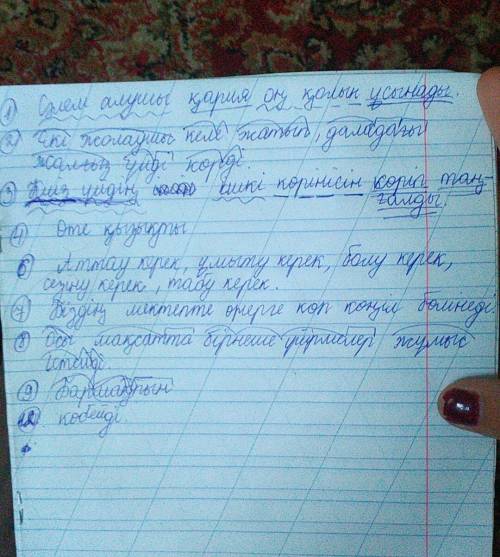 1 Сәлем алушы қария оң қолын ұсынады.
2 Екі жолаушы келе жатып, даладағы
жалғыз үйді көреді.
3 Киіз үйдің ішкі көрінісін көріп таң-
ғалды.
4 Өте қызықты
6 Аттау керек, ұмыту керек, болу керек,
сезіну керек, табу керек.
7 Біздің мектепте өнерге көп көңіл бөлінеді.
8 Осы мақсатта бірнеше үйірмелер жұмыс
істейді.
9
көбейді.